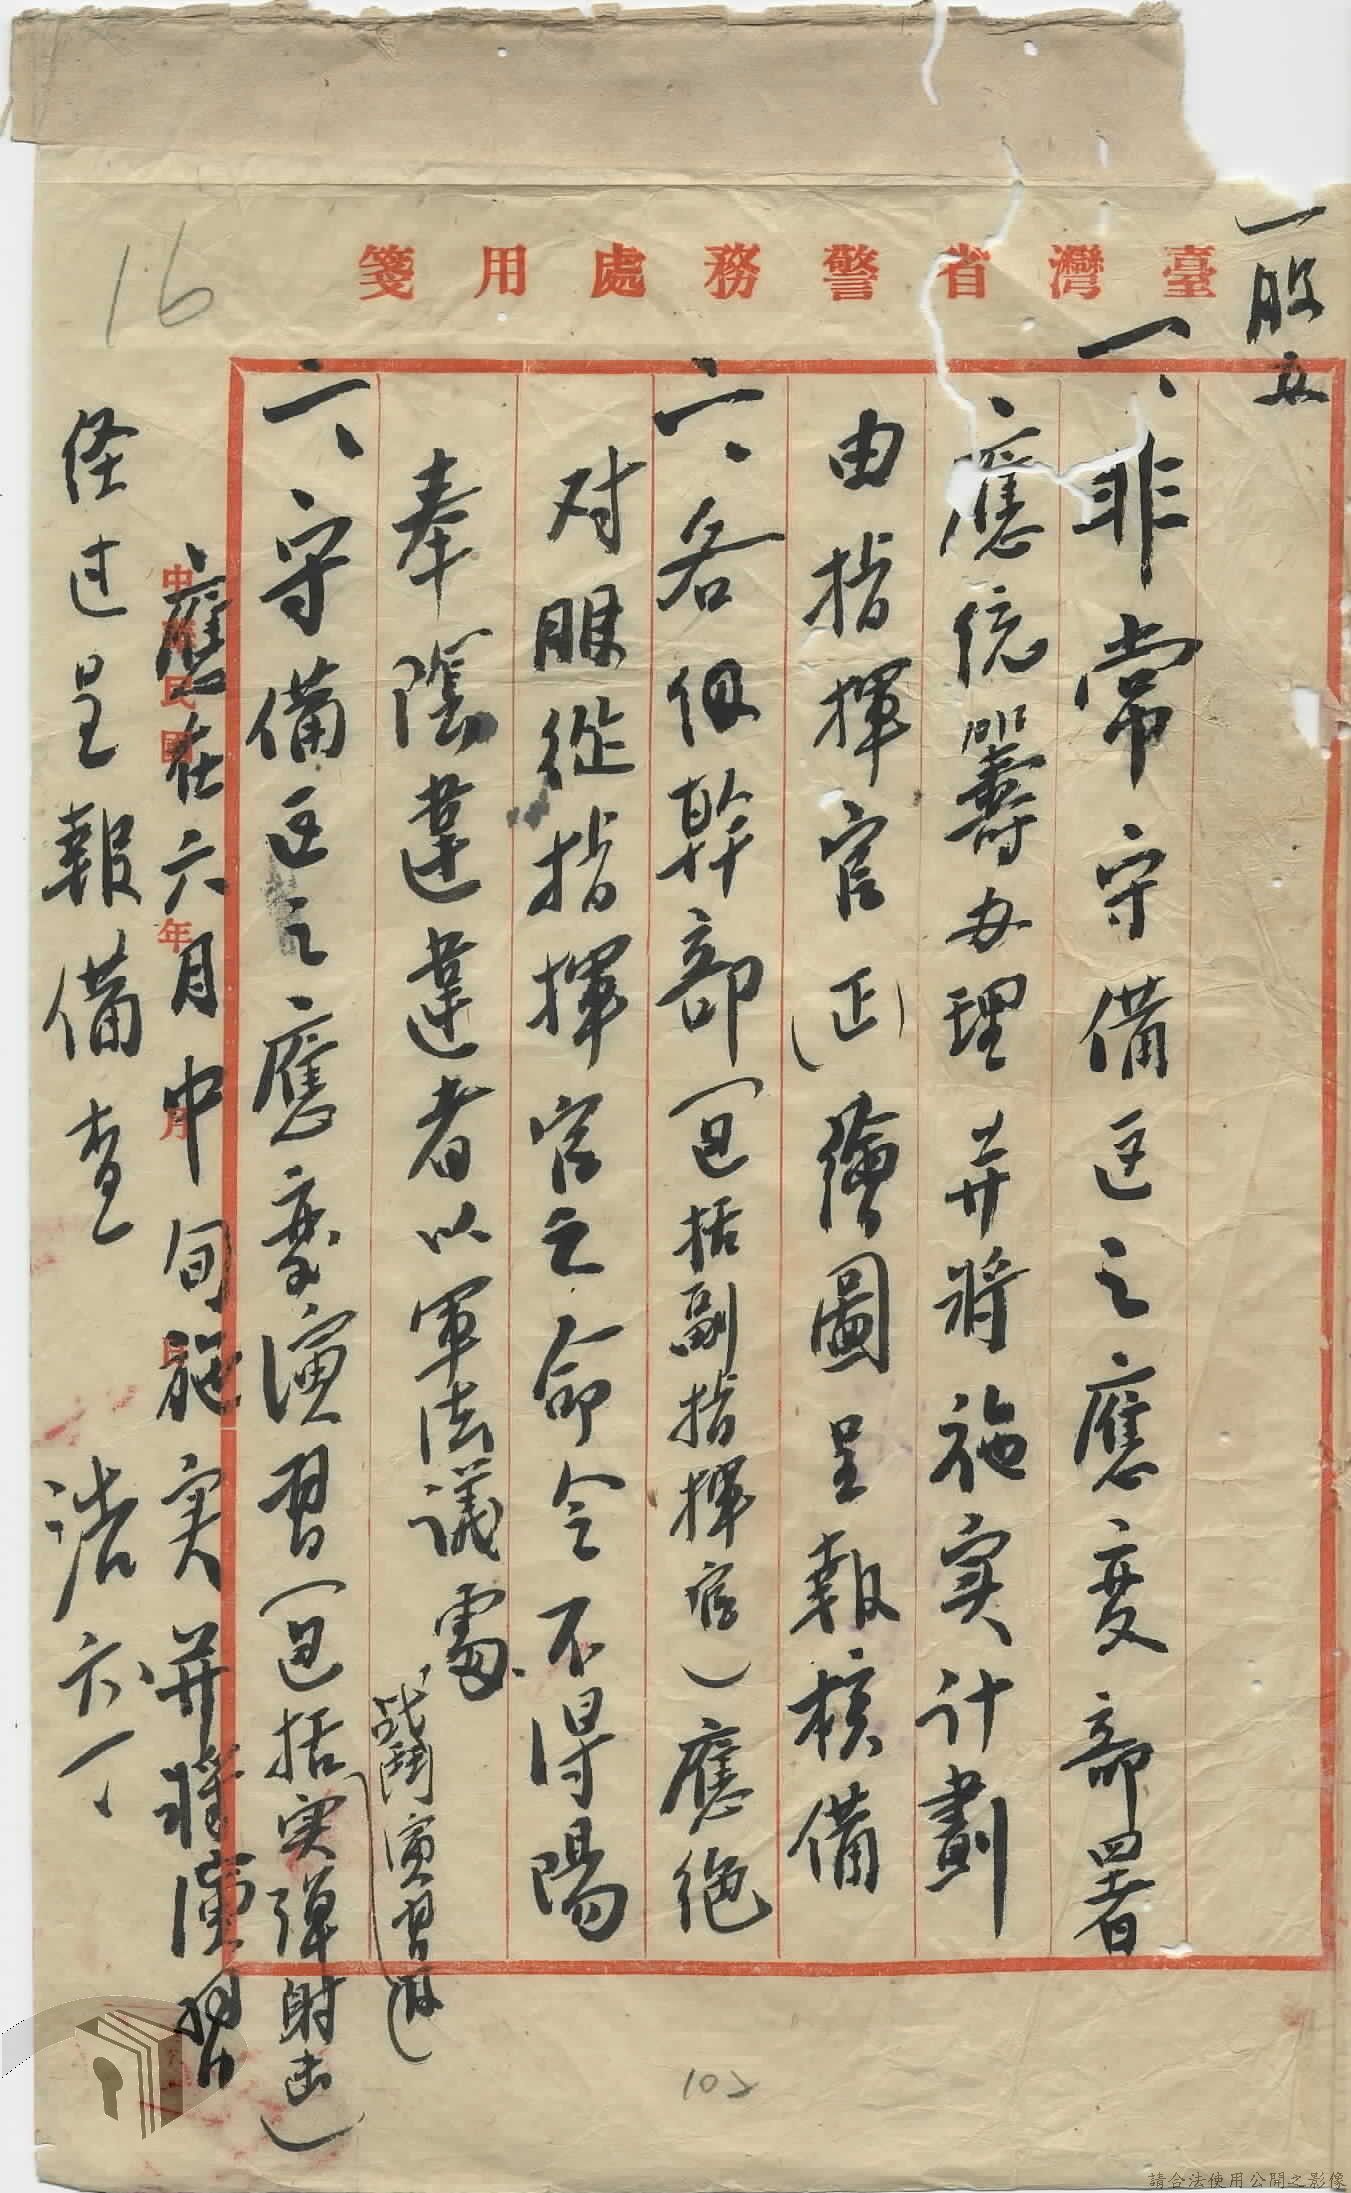 臺灣省警務處用箋
16
一股
一、非常守備區之應变部署
應統籌办理并將施实計劃
由指揮官(正)繪圖呈報核備
一、各級幹部(包括副指揮官)應絶
对服從指揮官之命令不得陽
奉陰違違者以軍法議處
一、守備区之應变演習(包括实彈射击)
战鬪演習
應在六月中旬施实并將演習
经过呈報備查
浩 六、一、
中華民國 年 月 日
102
請合法使用公開之影像